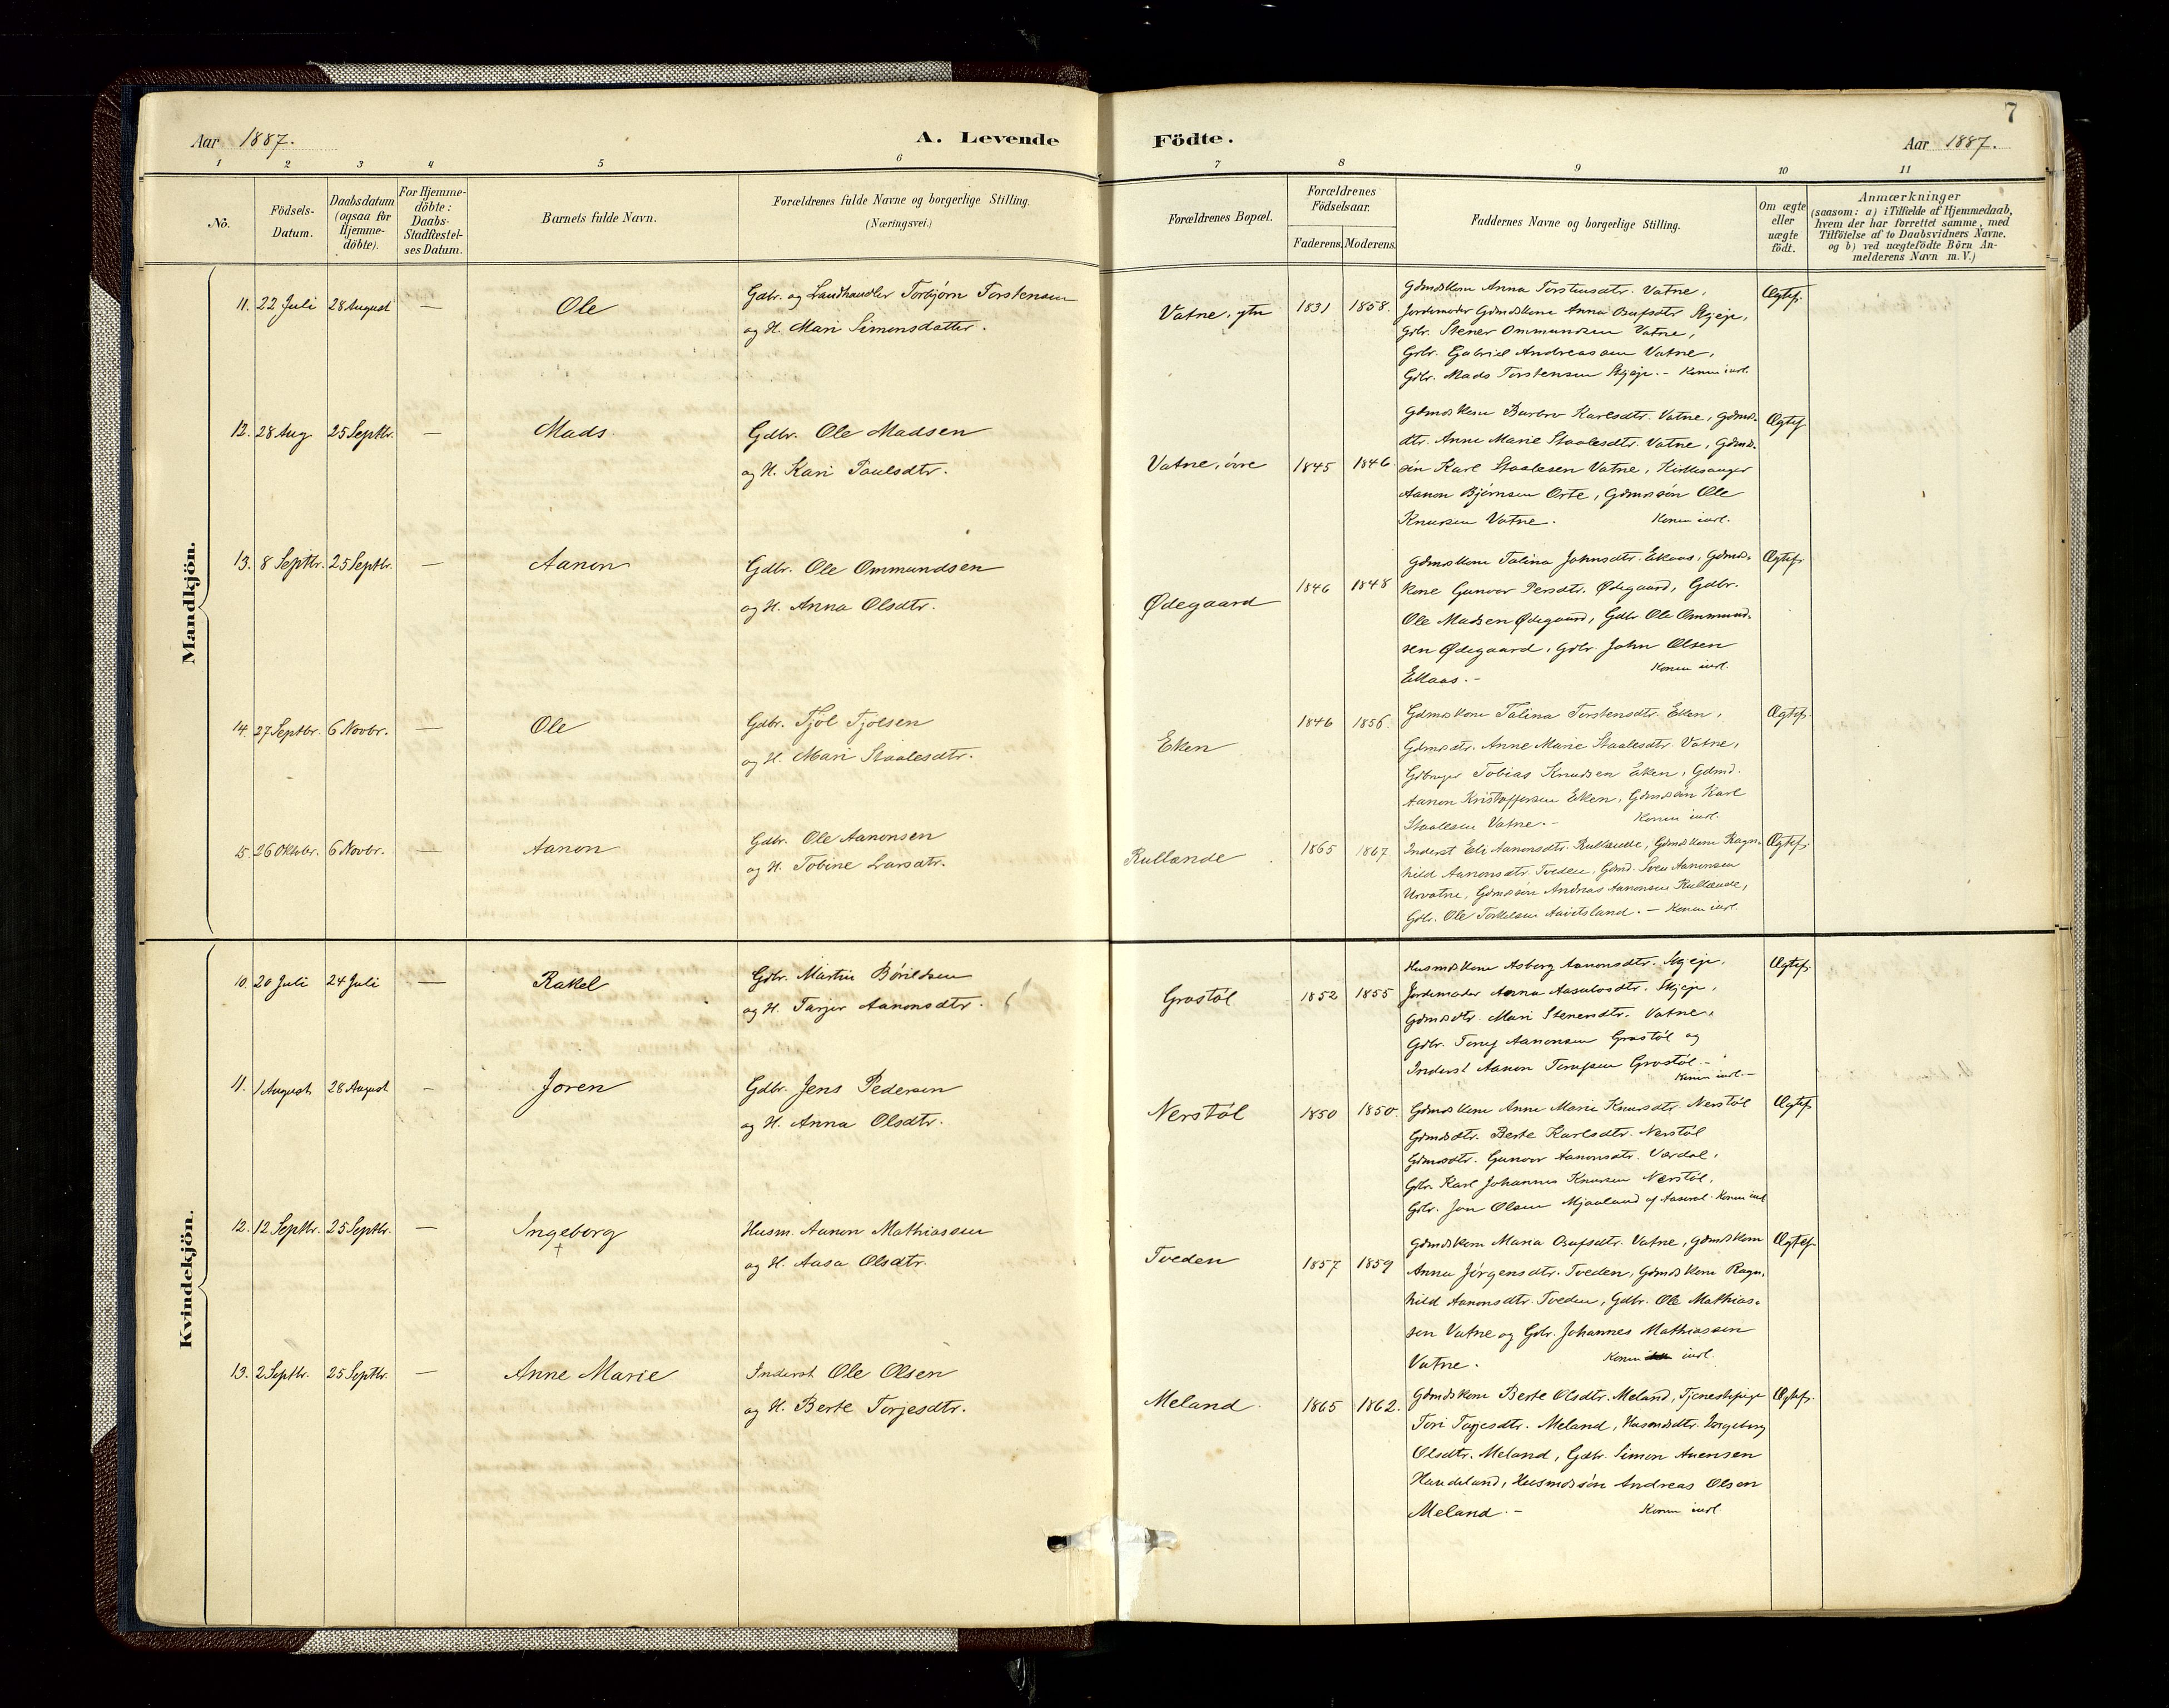 7
Aar 1887.
A. Levende
Födte.
Aar 1887.
1 2 3 4 5 6 7 8 9 10 11
No.
Födsels-
Datum.
Daabsdatum
(ogsaa for
Hjemme-
döbte).
For Hjemme-
döbte:
Daabs-
Stadfæstel-
ses Datum.
Barnets fulde Navn.
Forældrenes fulde Navne og borgerlige Stilling.
(Næringsvei.)
Forældrenes Bopæl.
Forældrenes
Födselsaar.
Faderens. Moderens.
Faddernes Navne og borgerlige Stilling.
Om ægte
eller
uægte
födt.
Anmærkninger
(saasom: a) i Tilfælde af Hjemmedaab,
hvem der har forrettet samme, med
Tilföielse af to Daabsvidners Navne.
og b) ved uægtefödte Börn An-
melderens Navn m. V.)
Mandkjön.
11. 22 Juli 28 August — Ole
Gdbr. og Landhandler Torbjørn Torstensen
og H. Mari Simonsdatter.
Vatne, ytre 1831 1858.
Gdmdskone Anna Torstensdtr. Vatne,
Jordemoder Gdmdskone Anna Osufsdtr Skjeje,
Gdbr. Stener Ommundsen Vatne,
Gdbr. Gabriel Andreassen Vatne,
Gdbr. Mads Torstensen Skjeje. - Konen indl.
Ægtef.
12. 28 Aug. 25 Septbr. — Mads.
Gdbr. Ole Madsen
og H. Kari Paulsdtr.
Vatne, øvre 1845 1846.
Gdmdskone Barbro Karlsdtr. Vatne, Gdmds-
dtr. Anne Marie Staalesdtr. Vatne, Gdmds-
søn Karl Staalesen Vatne, Kirkesanger
Aanon Bjørnsen Orte, Gdmdssøn Ole
Knudsen Vatne. Konen indl.
Ægtef
13. 8 Septbr. 25 Septbr. — Aanon
Gdbr. Ole Ommundsen
og H. Anna Olsdtr.
Ødegaard 1846 1848
Gdmdskone Talina Johnsdtr. Eikaas, Gdmds-
kone Gunvor Persdtr. Ødegaard, Gdbr.
Ole Madsen Ødegaard, Gdbr Ole Ommund-
sen Ødegaard, Gdbr. John Olsen
Eikaas. - Konen indl.
Ægtef
14. 27 Septbr. 6 Novbr. — Ole
Gdbr. Tjøl Tjølsen
og H. Mari Staalesdtr.
Eken 1846 1856.
Gdmdskone Talina Torstensdtr. Eken,
Gdmdsdtr. Anne Marie Staalesdtr. Vatne,
Tobias Knudsen Eken, Gdmd.
Aanon Kristoffersen Eken, Gdmdssøn Karl
Staalesen Vatne. - Konen indl.
Ægtef.
15. 26 Oktobr. 6 Novbr. — Aanon
Gdbr. Ole Aanonsen
og H. Tobine Larsdtr.
Rullande 1865 1867
Inderst Eli Aanonsdtr. Rullande, Gdmdskone Ragn-
hild Aanonsdtr. Tveden, Gdmd. Sven Aanonsen
Urvatne, Gdmdssøn Andreas Aanonsen Rullande,
Gdbr. Ole Torkelsen Aavitsland. - Konen indl.
Ægtef.
Kvindekjön.
10. 20 Juli 24 Juli — Rakel
Gdbr. Martin Børildsen
og H. Tarjer Aanonsdtr.
Grostøl 1852 1855
Husmdskone Asborg Aanonsdtr. Skjeje,
Jordemoder Anna Aasulvsdtr. Skjeje,
Gdmdsdtr. Mari Stenersdtr. Vatne,
Gdbr. Aanonsen Grostøl og
Inderst Aanon Grostøl -
Konen indl. -
Ægtef.
11. 1 August 28 August - Joren
Gdbr. Jens Pedersen
og H. Anna Olsdtr.
Nerstøl 1850 1850.
Gdmdskone Anne Marie Knudsdtr. Nerstøl
Gdmdsdtr. Berte Karlsdtr. Nerstøl
Gdmdsdtr. Gunvor Aanonsdtr. Værdal,
Gdbr. Karl Johannes Knudsen Nerstøl,
Gdbr. Jon Olsen Mjaaland af Aaseral. Konen indl
Ægtef
12. 12 Septbr. 25 Septbr. — Ingeborg
†
Husm. Aanon Mathiassen
og H. Aasa Olsdtr.
Tveden 1857 1859
Gdmdskone Maria Osufsdtr. Vatne, Gdmdskone
Anna Jørgensdtr. Tveden, Gdmdskone Ragn-
hild Aanonsdtr. Tveden, Gdbr. Ole Mathias-
sen Vatne og Gdbr. Johannes Mathiassen
Vatne. Konen indl.
Ægtef.
13. 2 Septbr. 25 Septbr. — Anne Marie
Inderst Ole Olsen
og H. Berte Torjesdtr.
Meland. 1865 1862.
Gdmdskone Berte Olsdtr. Meland, Tjenestepige
Tori Torjesdtr. Meland, Husmdsdtr. Ingeborg
Olsdtr. Meland, Gdbr. Simon Auensen
Haudeland, Husmdssøn Andreas Olsen
Meland. - Konen indl
Ægtef.